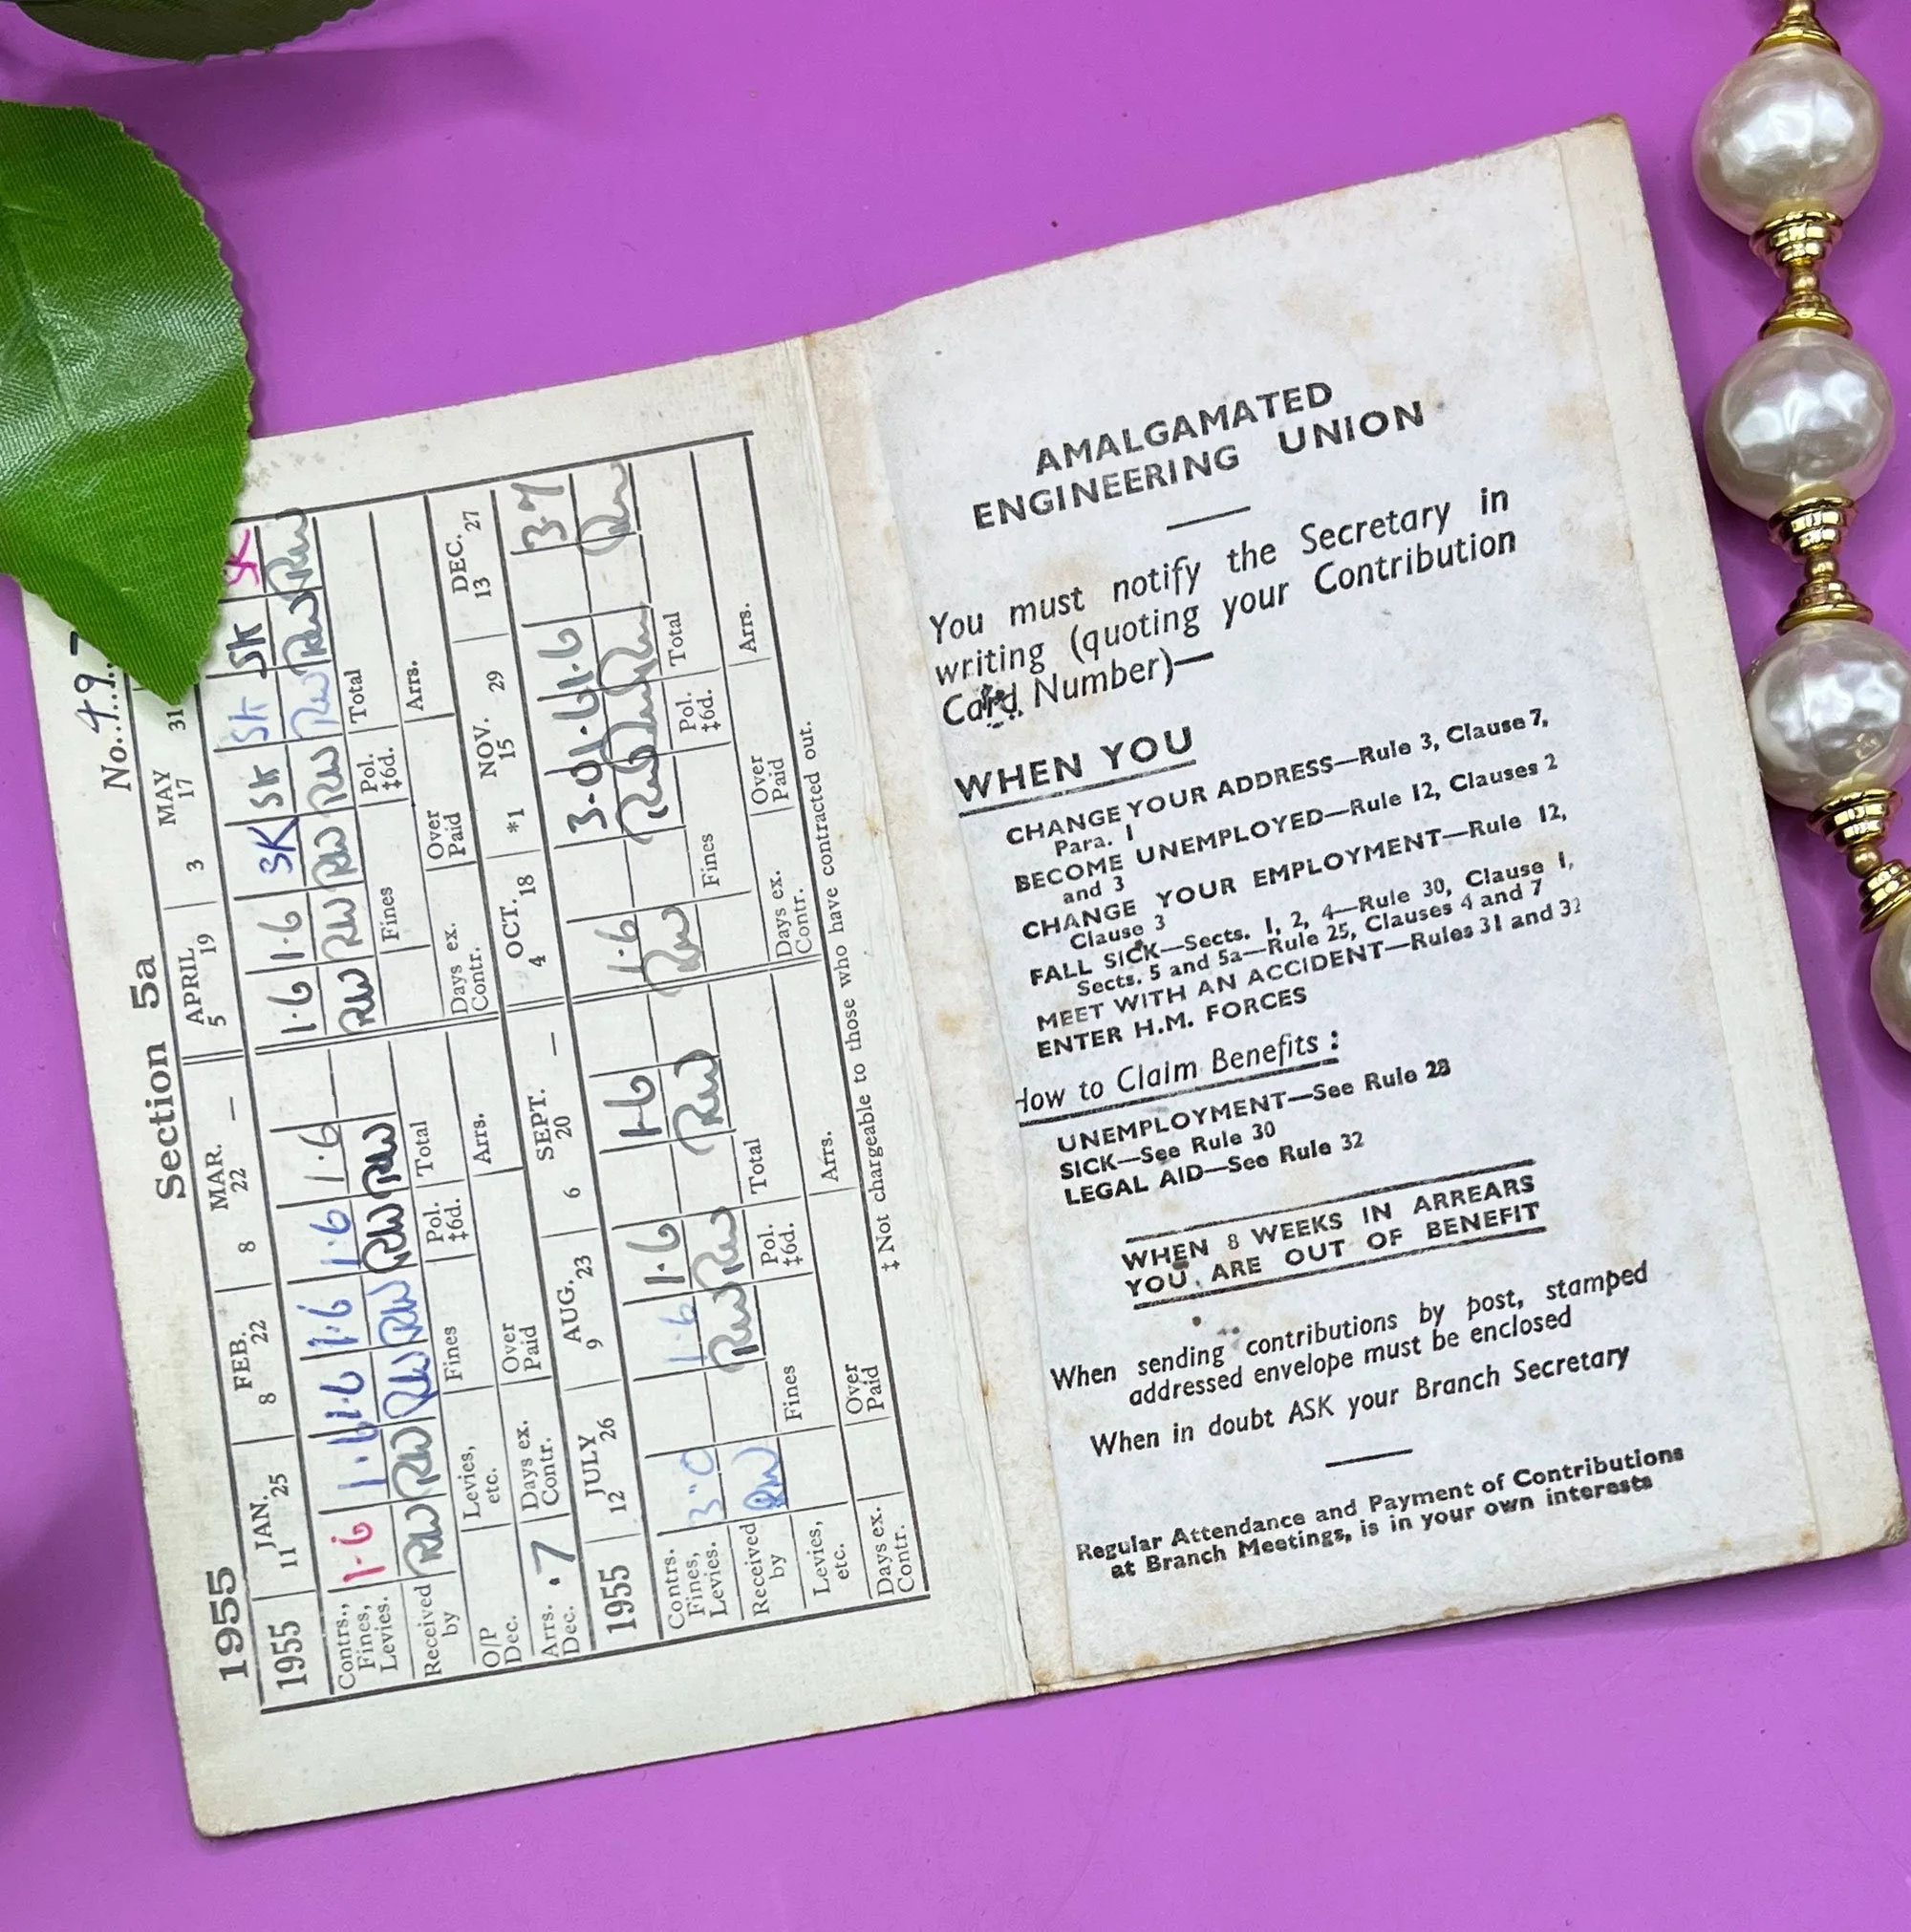 No. 49
1955 Section 5a
1955 JAN. FEB. MAR. APRIL MAY
11 25 8 22 8 22 — 5 19 3 17 31
Contrs., Fines, Levies. 1·6 1·6 1·6 1·6 1·6 1·6 1·6 1·6 SK SK SK SK SK
Received by RW RW RW RW RW RW RW RW RW RW RW RW RW
Levies, etc. Fines Pol. ‡6d. Total Fines Pol. ‡6d. Total
O/P Dec.
Arrs. Dec. ·7 Days ex. Contr. Over Paid Arrs. Days ex. Contr. Over Paid Arrs.
1955 JULY AUG. SEPT. OCT. NOV. DEC.
12 26 9 23 6 20 — 4 18 *1 15 29 13 27
Contrs. Fines, Levies. 3"0 1·6 1·6 1·6 1·6 3·0 1·6 1·6 3·7
Received by RW RW RW RW RW RW RW RW RW
Levies, etc. Fines Pol. ‡6d. Total Fines Pol. ‡6d. Total
Days ex. Contr. Over Paid Arrs. Days ex. Contr. Over Paid Arrs.
‡ Not chargeable to those who have contracted out.
AMALGAMATED
ENGINEERING UNION
You must notify the Secretary in
writing (quoting your Contribution
Card Number)—
WHEN YOU
CHANGE YOUR ADDRESS—Rule 3, Clause 7,
Para. 1
BECOME UNEMPLOYED—Rule 12, Clauses 2
and 3
CHANGE YOUR EMPLOYMENT—Rule 12,
Clause 3
FALL SICK—Sects. 1, 2, 4—Rule 30, Clause 1,
Sects. 5 and 5a—Rule 25, Clauses 4 and 7
MEET WITH AN ACCIDENT—Rules 31 and 32
ENTER H.M. FORCES
How to Claim Benefits :
UNEMPLOYMENT—See Rule 28
SICK—See Rule 30
LEGAL AID—See Rule 32
WHEN 8 WEEKS IN ARREARS
YOU ARE OUT OF BENEFIT
When sending contributions by post, stamped
addressed envelope must be enclosed
When in doubt ASK your Branch Secretary
Regular Attendance and Payment of Contributions
at Branch Meetings, is in your own interests